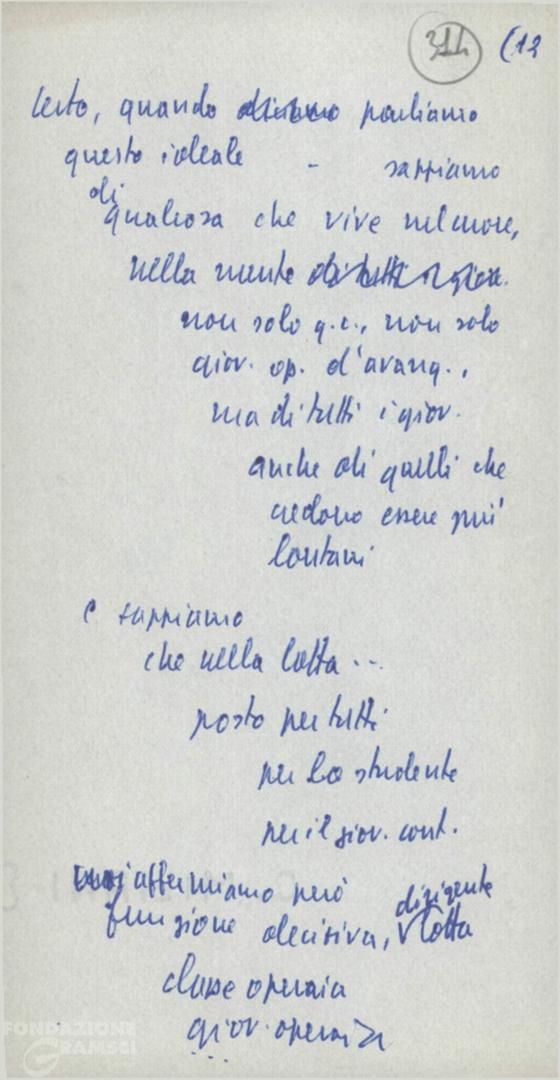 314 (12
Certo, quando parliamo
questo ideale - sappiamo
di
qualcosa che vive nel cuore,
nella mente di tutti i giov.
non solo g.c., non solo
giov. op. d'avang.,
ma di tutti i giov.
anche di quelli che
credono essere più
lontani
e sappiamo
che nella lotta ...
posto per tutti
per lo studente
per il giov. cont.
noi affermiamo però
dirigente
funzione decisiva, lotta
classe operaia
giov. operaia
...
FONDAZIONE
GRAMSCI